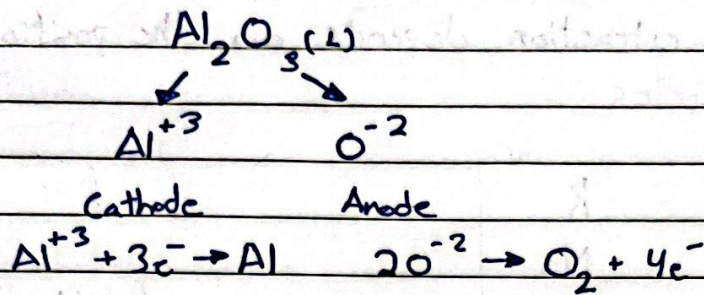 Al₂O₃(L)
Al⁺³ O⁻²
Cathode Anode
Al⁺³ + 3e⁻ → Al 2O⁻² → O₂ + 4e⁻